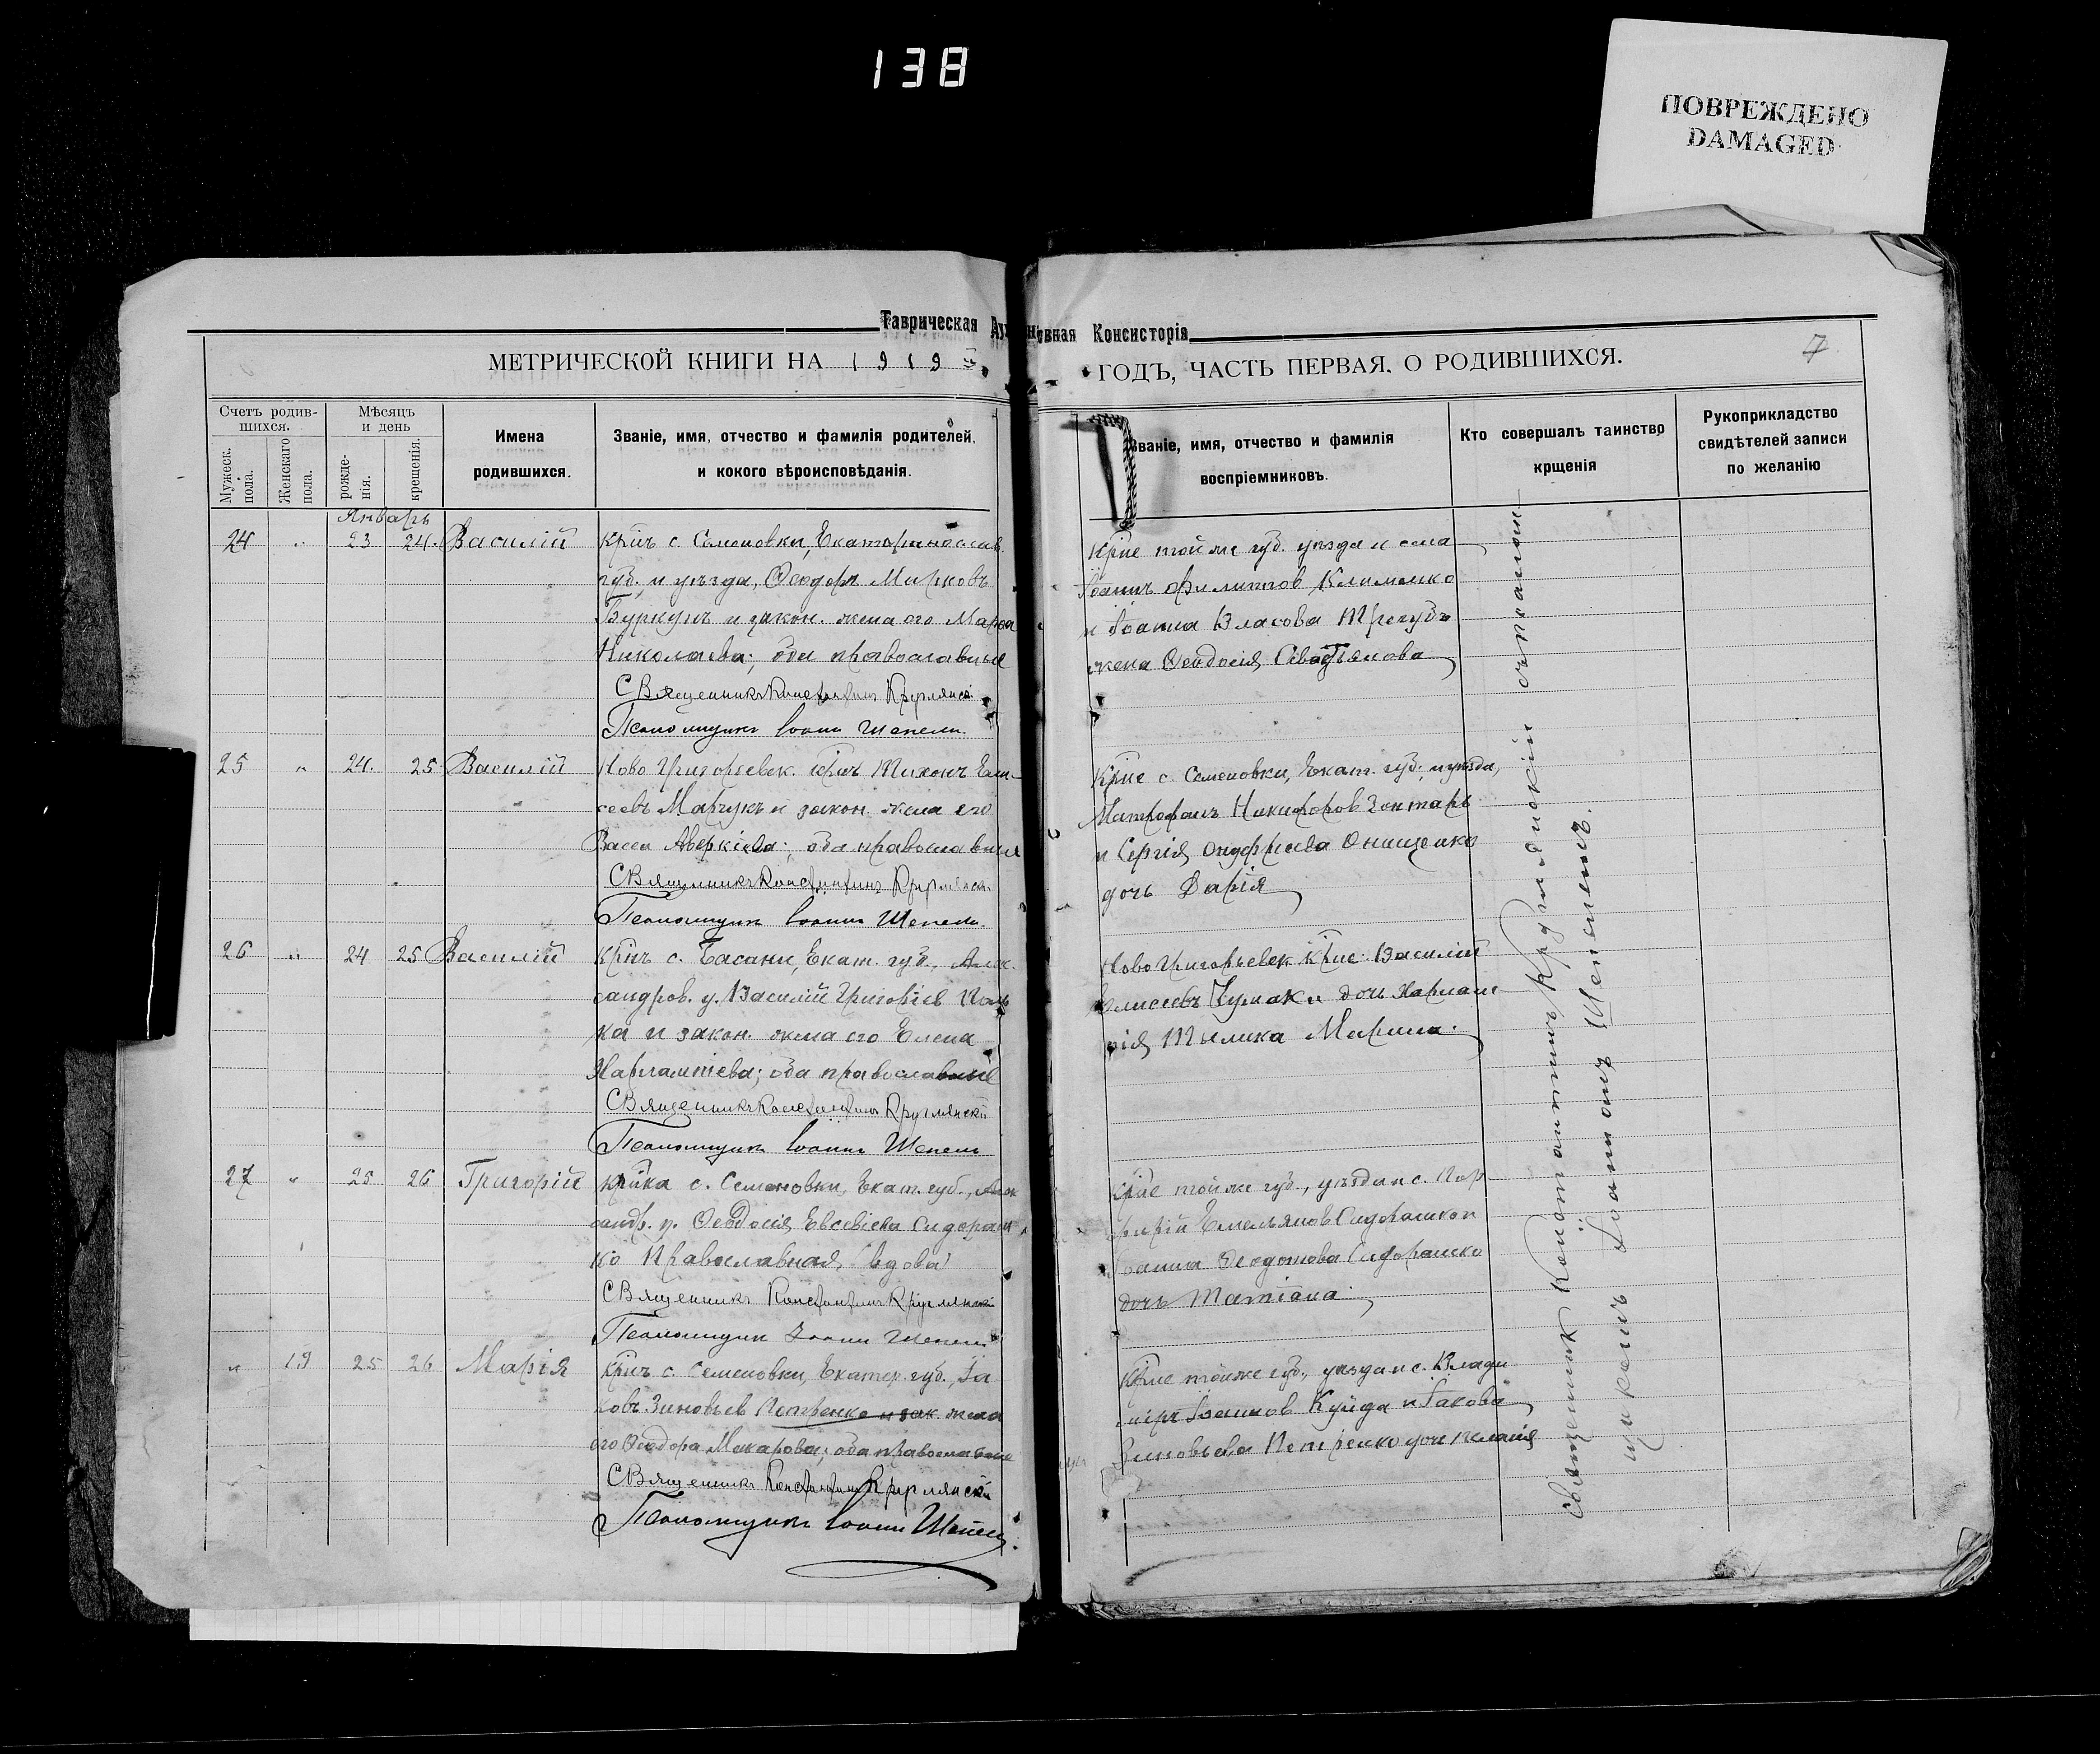 138
ПОВРЕЖДЕНО
DAMAGED
Таврическая Духовная Консисторія
МЕТРИЧЕСКОЙ КНИГИ НА 1919
ГОДЪ, ЧАСТЬ ПЕРВАЯ. О РОДИВШИХСЯ.
7
Счетъ родив-
шихся.
Мужеск.
пола.
Женскаго
пола.
Мѣсяцъ
и день
рожде-
нія.
крещенія.
Имена
родившихся.
Званіе, имя, отчество и фамилія родителей,
и кокого вѣроисповѣданія.
Званіе, имя, отчество и фамилія
воспріемниковъ.
Кто совершалъ таинство
крщенія
Рукоприкладство
свидѣтелей записи
по желанію
Январь
24 " 23 24. Василій
Крнъ с. Семеновки, Екатеринослав.
губ. и уѣзда, Ѳеодоръ Марковъ
Буркунъ и закон. жена его Марѳа
Николаева; оба православные
Священникъ Константинъ Круглянскі
Псаломщикъ Іоаннъ Шепель.
Крне той же губ. уѣзда и села
Іоаннъ Филиппов Клименко
и Іоанна Власова Трегубъ
жена Ѳеодосія Севастьянова
25 " 24. 25 Василій
Ново Григорьевск. крнъ Тихонъ Ели-
сеевъ Марчукъ и закон. жена его
Васса Аверкіева; оба православные
Священникъ Константинъ Круглянск
Псаломщикъ Іоаннъ Шепель.
Крне с. Семеновки, Екат. губ. и уѣзда,
Митрофанъ Никифоров Зонтарь
и Сергія Онуфріева Онищенко
дочь Дарія
26 " 24 25 Василій
Крнъ с. Басани, Екат. губ., Алек-
сандров. у. Василій Григоріев
ка и закон. жена его Елена
Харлампіева; оба православные
Священникъ Константинъ Круглянскі
Псаломщикъ Іоаннъ Шепель
Ново Григорьевск крне: Василій
Елисеевъ Чумак и дочь Харламп-
пія Тылика Марина.
27 " 25 26 Григорій
Крнка с. Семеновки, Екат. губ., Алек
сандр. у. Ѳеодосія Евсевіева Сидорен-
ко Православная, вдова
Священникъ Константинъ Круглянскі
Псаломщикъ Іоаннъ Шепель
Крне той же губ., уѣзда и с. Пор-
фирій Емельянов Сидоренко и
Іоанна Ѳеодотова Сидоренко
дочь Татіана
" 19 25 26 Марія
Крнъ с. Семеновки, Екатер. губ., Іа
ковъ Зиновьев Петренко и зак. жена
его Ѳеодора Макарова; оба православные
Священникъ Константинъ Круглянскі
Псаломщикъ Іоаннъ Шепель.
Крне той же губ., уѣзда и с. Влади
міръ Іоаннов Куйда и Іакова
Зиновьева Петренко дочь Пелагія
Священник Константинъ Круглянскій съ псалом-
щикомъ Іоанномъ Шепелемъ.